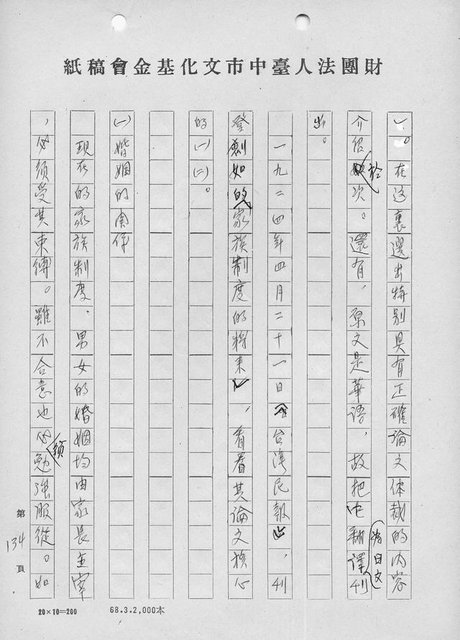 財團法人臺中市文化基金會稿紙
一。在這裏選出特別具有正確論文体裁的內容
介紹於次。還有，原文是華語，故把它翻譯為日文刊
出。
一九二四年四月二十一日《台灣民報》，刊
登劍如的家族制度的將來，看看其論文核心
的(一)(二)。
(一)婚姻的条件
現在的家族制度。男女的婚姻均由家長主宰
，必須受其束縛。雖不合意也必須勉強服從。如
第134頁
20×10=200
68.3.2,000本